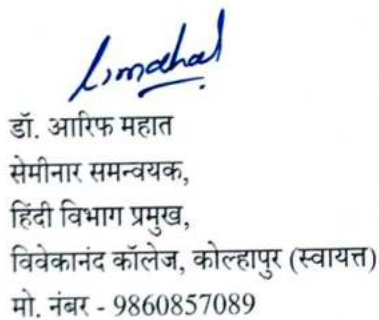 डॉ. आरिफ महात
सेमीनार समन्वयक,
हिंदी विभाग प्रमुख,
विवेकानंद कॉलेज, कोल्हापुर (स्वायत्त)
मो. नंबर - 9860857089